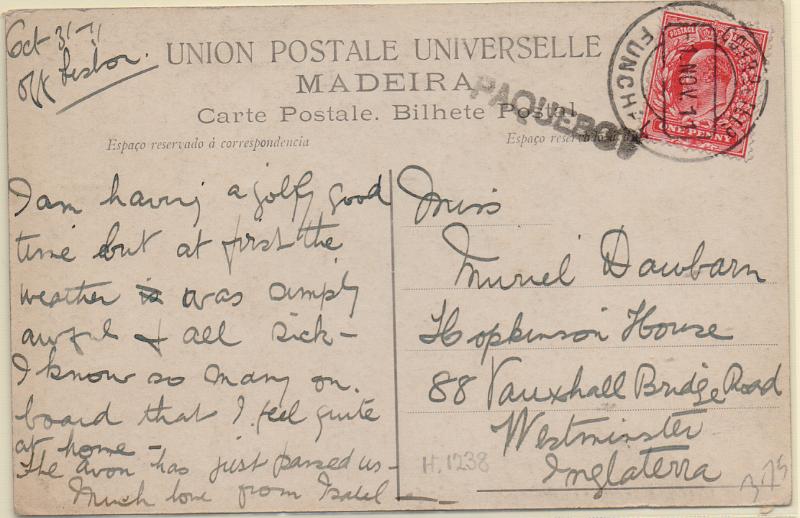 Oct 31-11
off Lisbon.
UNION POSTALE UNIVERSELLE
MADEIRA
Carte Postale. Bilhete Postal
Espaço reservado á correspondencia
Espaço reserv
PAQUEBOT
FUNCHAL
1 NOV 11
POSTAGE
ONE PENNY
I am having a golfy good
time but at first the
weather is was simply
awful & all sick -
I know so many on.
board that I feel quite
at home -
The Avon has just passed us -
Much love from Isabel
Miss
Muriel Dawbarn
Hopkinson House
88 Vauxhall Bridge Road
Westminster
Inglaterra
H.1238